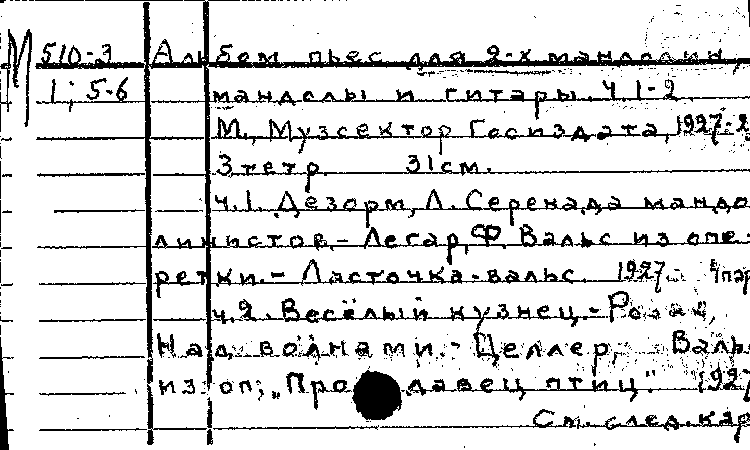 М 510-3 Альбом пьес для 2-х мандолин,
1; 5-6 мандолы и гитары. Ч 1-2
М., Музсектор Госиздата, 1927-2
3 тетр. 31 см.
ч.1. Дезорм, Л. Серенада мандо
линистов.- Легар, Ф. Вальс из опе-
ретки.- Ласточка-вальс. 1927.
ч.2. Весёлый кузнец.- Розас,
Над волнами.- Целлер, Валь
из оп; „Продавец птиц". 1927
См. след. кар